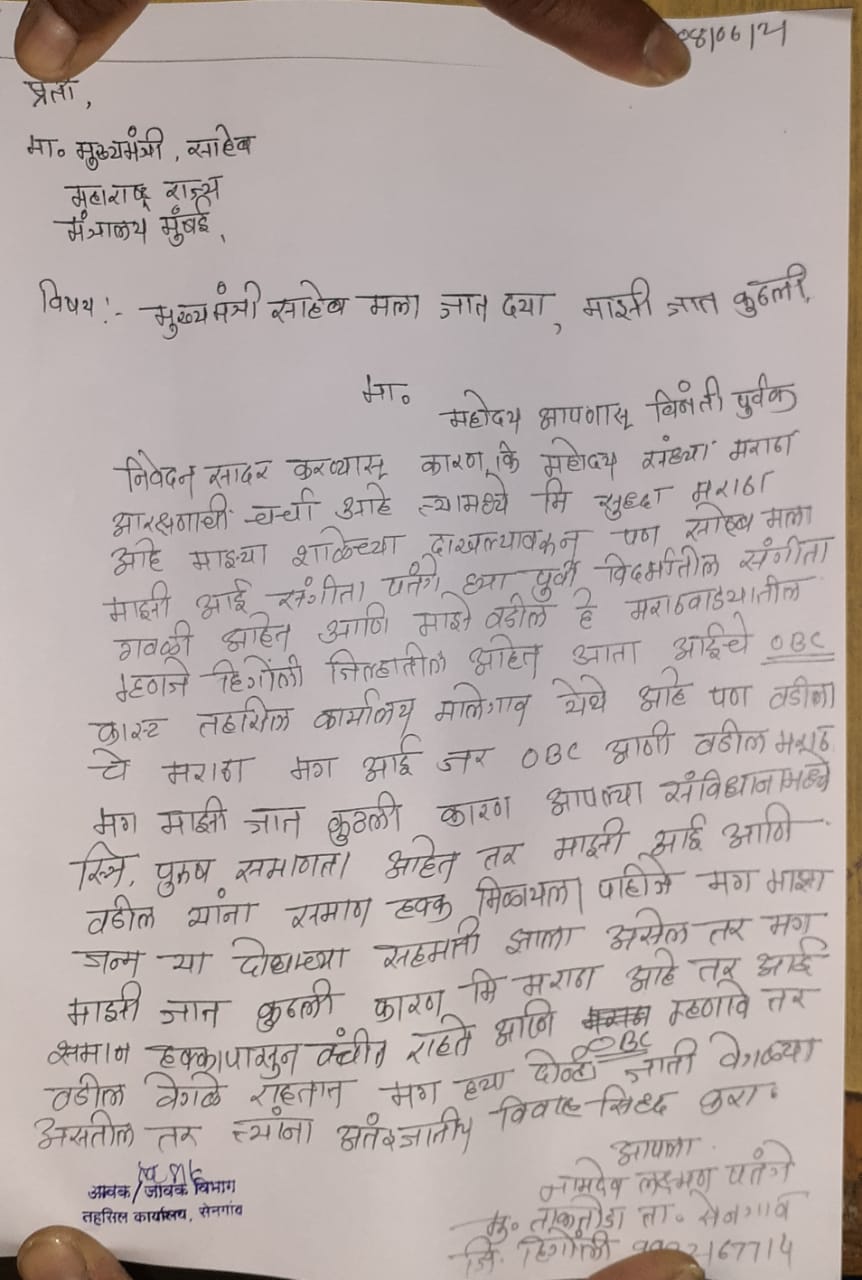 08/06/21
प्रती,
मा. मुख्यमंत्री, साहेब
महाराष्ट्र राज्य
मंत्रालय मुंबई,
विषय :- मुख्यमंत्री साहेब मला जात दया, माझी जात कुठली,
मा.
महोदय आपणास विनंती पुर्वक
निवेदन सादर करण्यास कारण, कि महोदय संध्या मराठा
आरक्षणाची चर्चा आहे त्यामध्ये मि सुध्दा मराठा
आहे माझ्या शाळेच्या दाखल्यावरून पण साहेब मला
माझी आई संगीता पतंगे ह्या पुर्वी विदर्भातील संगीता
गवळी आहेत आणि माझे वडील हे मराठवाडयातील
म्हणजे हिंगोली जिल्हातील आहेत आता आईचे OBC
कास्ट तहसिल कार्यालय मालेगाव येथे आहे पण वडीला
चे मराठा मग आई जर OBC आणी वडील मराठ
मग माझी जात कुठली कारण आपल्या संविधानामध्ये
स्त्रि, पुरुष समानता आहेत तर माझी आई आणि
वडील यांना समान हक्क मिळायला पाहीजे मग माझा
जन्म या दोघाच्या सहमती झाला असेल तर मग
माझी जात कुठली कारण मि मराठा आहे तर आई
समान हक्कापासुन वंचीत राहते आणि OBC म्हणावे तर
वडील वेगळे राहतात मग हया दोन्ही जाती वेगळ्या
असतील तर त्यांना अतंरजातीय विवाह सिध्द करा.
आपला
नामदेव लक्ष्मण पतंगे
मु. ताकतोडा ता. सेनगाव
जि. हिंगोली
आवक/जावक विभाग
तहसिल कार्यालय, सेनगांव